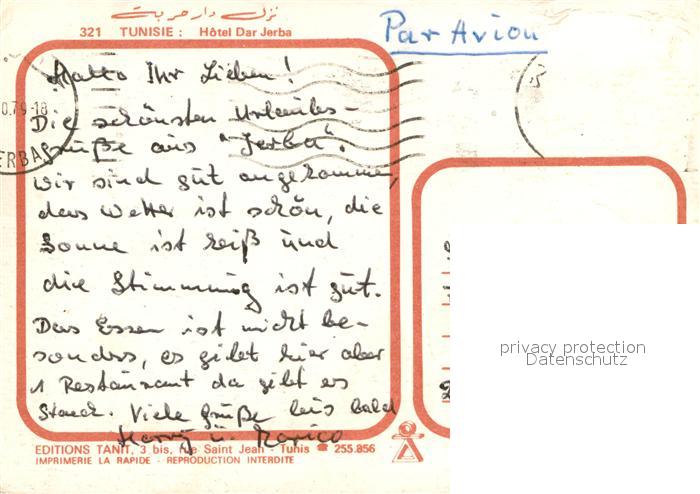 نزل دار جربة
321 TUNISIE: Hôtel Dar Jerba
Par Avion
Hallo Ihr Lieben!
Die schönsten Urlaubs-
grüße aus "Jerba".
Wir sind gut angekommen,
das Wetter ist schön, die
Sonne ist heiß und
die Stimmung ist gut.
Das Essen ist nicht be-
sonders, es gibt hier aber
1 Restaurant da gibt es
Steack. Viele Grüße bis bald
u.
EDITIONS TANIT, 3 bis, rue Saint Jean - Tunis ☎ 255.856
IMPRIMERIE LA RAPIDE - REPRODUCTION INTERDITE
privacy protection
Datenschutz